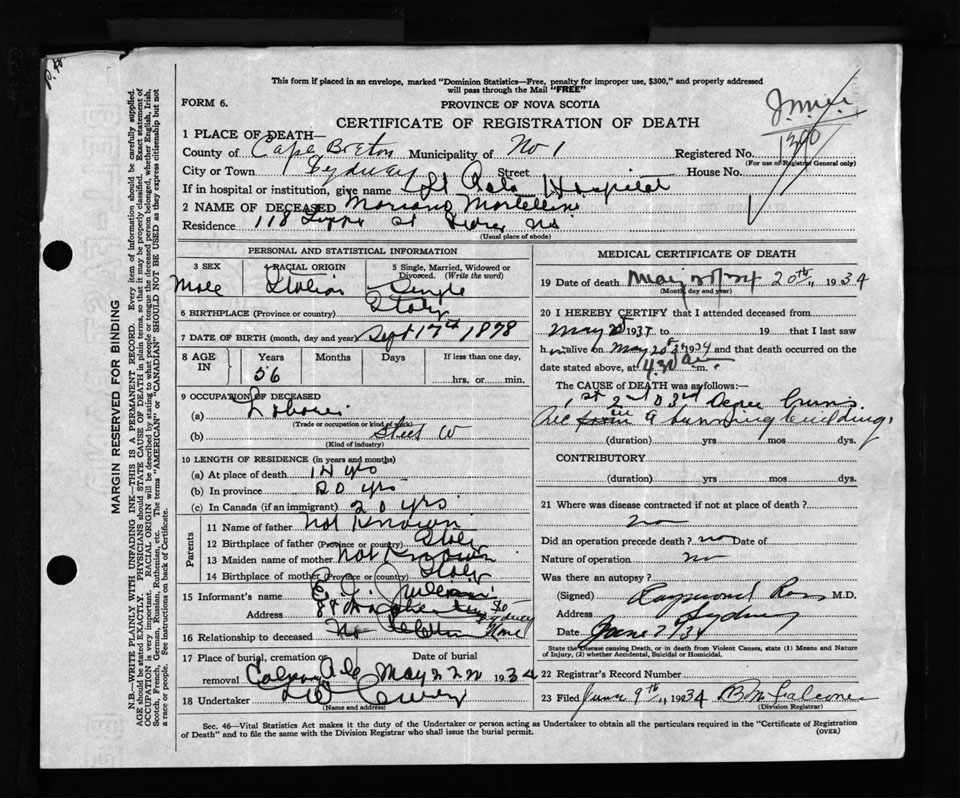 This form if placed in an envelope, marked "Dominion Statistics—Free, penalty for improper use, $300," and properly addressed
will pass through the Mail "FREE"
FORM 6.
PROVINCE OF NOVA SCOTIA
CERTIFICATE OF REGISTRATION OF DEATH
1390
1 PLACE OF DEATH—
County of Cape Breton Municipality of No 1 Registered No.
(For use of Registrar General only)
City or Town Sydney Street House No.
If in hospital or institution, give name St Rita Hospital
2 NAME OF DECEASED Moriano Martellini
Residence 118 St
(Usual place of abode)
PERSONAL AND STATISTICAL INFORMATION
3 SEX 4 RACIAL ORIGIN 5 Single, Married, Widowed or Divorced. (Write the word)
Male Italian Single
6 BIRTHPLACE (Province or country) Italy
7 DATE OF BIRTH (month, day and year) Sept 17th 1878
8 AGE IN Years Months Days If less than one day,
56 hrs. or min.
9 OCCUPATION OF DECEASED
(a) Laborer
(Trade or occupation or kind of work)
(b) Steel W
(Kind of industry)
10 LENGTH OF RESIDENCE (in years and months)
(a) At place of death 14 yrs
(b) In province 20 yrs
(c) In Canada (if an immigrant) 20 yrs.
Parents
11 Name of father Not Known
12 Birthplace of father (Province or country) Italy
13 Maiden name of mother Not Known
14 Birthplace of mother (Province or country) Italy
15 Informant's name
Address 88 St Sydney
16 Relationship to deceased No Relation None
17 Place of burial, cremation or removal Date of burial
May 22nd 1934
18 Undertaker
(Name and address)
MEDICAL CERTIFICATE OF DEATH
19 Date of Death May 20th, 1934
(Month, day and year)
20 I HEREBY CERTIFY that I attended deceased from
May 20 193 to 19 that I last saw
him alive on May 20th 1934 and that death occurred on the
date stated above, at 4.30 a m.
The CAUSE of DEATH was as follows:
1st 2nd 3rd Degree burns
a burning building,
(duration) yrs mos dys.
CONTRIBUTORY
(duration) yrs mos dys.
21 Where was disease contracted if not at place of death?
no
Did an operation precede death? no Date of
Nature of operation no
Was there an autopsy?
(Signed) Raymond Ross M.D.
Address Sydney
Date June 7/34
State the Disease causing Death, or in death from Violent Causes, state (1) Means and Nature
of Injury, (2) whether Accidental, Suicidal or Homicidal.
22 Registrar's Record Number
23 Filed June 9th, 1934 B M Falcone
(Division Registrar)
Sec. 46—Vital Statistics Act makes it the duty of the Undertaker or person acting as Undertaker to obtain all the particulars required in the "Certificate of Registration
of Death" and to file the same with the Division Registrar who shall issue the burial permit.
(OVER)
MARGIN RESERVED FOR BINDING
N.B.—WRITE PLAINLY WITH UNFADING INK—THIS IS A PERMANENT RECORD. Every item of information should be carefully supplied.
AGE should be stated EXACTLY. PHYSICIANS should STATE CAUSE OF DEATH in plain terms, so that it may be properly classified. Exact statement of
OCCUPATION is very important. RACIAL ORIGIN will be described by stating to what people or tongue the deceased person belonged, whether English, Irish,
Scotch, French, German, Russian, Ruthenian, etc. The terms "AMERICAN" or "CANADIAN" SHOULD NOT BE USED as they express citizenship but not
a race or people. See instructions on back of Certificate.